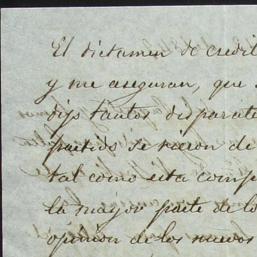 El dictamen de credit
y me aseguran, que
disparate
partido se rieron de
tal como esta comp
la mayor parte de lo
opinion de los nuevos